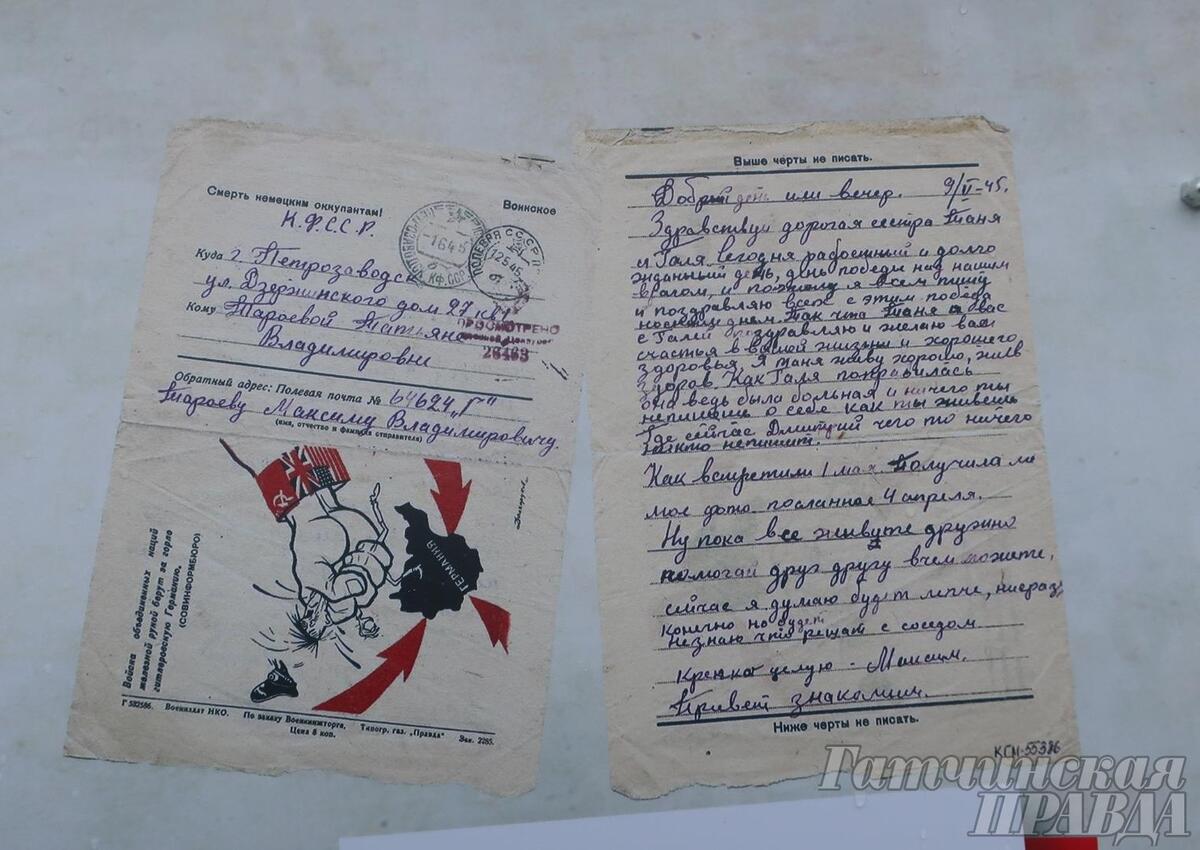 Смерть немецким оккупантам!
Воинское
К.Ф.С.С.Р.
Куда г. Петрозаводск
ул. Дзержинского дом 27 кв
Кому Тароевой Татьяне
Владимировне
ПОЛЕВАЯ
12.5.45
1645
КФ.ССР
ПРОСМОТРЕНО
26468
Обратный адрес: Полевая почта № 64624 „Г"
Тароеву Максиму Владимировичу
(имя, отчество и фамилия отправителя)
ГЕРМАНИЯ
Войска объединенных наций
железной рукой берут за горло
гитлеровскую Германию.
(СОВИНФОРМБЮРО)
Г 582586. Воениздат НКО. По заказу Военкнижторга. Типогр. газ. „Правда" Зак. 2285.
Цена 8 коп.
Выше черты не писать.
Добрый день или вечер. 9/V-45.
Здравствуй дорогая сестра Таня
и Галя Сегодня радостный и долго
жданный день, день победы над нашим
врагом, и поэтому я всем пишу
и поздравляю всех с этим победо
носным днем. Так что Таня я вас
с Галей поздравляю и желаю вам
счастья в вашей жизни и хорошего
здоровья, Я Таня живу хорошо, жив
здоров. Как Галя поправилась
она ведь была больная и ничего ты
непишешь о себе как ты живешь
Где сейчас Дмитрий чего то ничего
никто непишит.
Как встретили 1 мая. Получила ли
мое фото посланное 4 апреля.
Ну пока все живите дружно
помогай друг другу в чем можете,
сейчас я думаю будет легче, нисраз
конечно но будет
незнаю что решат с соседом
Крепко целую - Максим.
Привет знакомым.
Ниже черты не писать.
КГМ-55386
Гатчинская
ПРАВДА